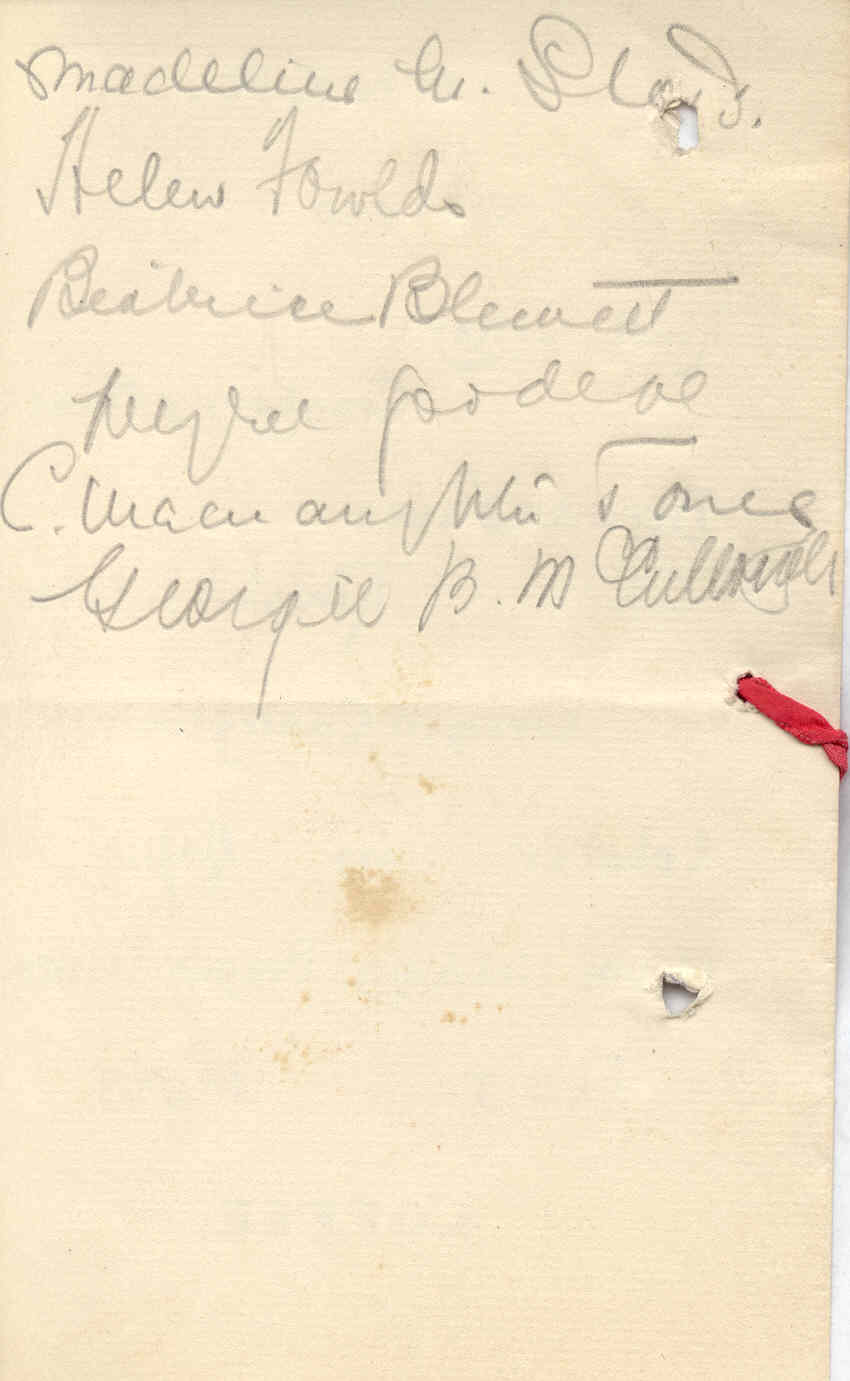 Madeline M.
Helen Fowlds
Beatrice Blewett
Myra Goodeve
C. Macnaughtin Jones
Georgie B. McCullough